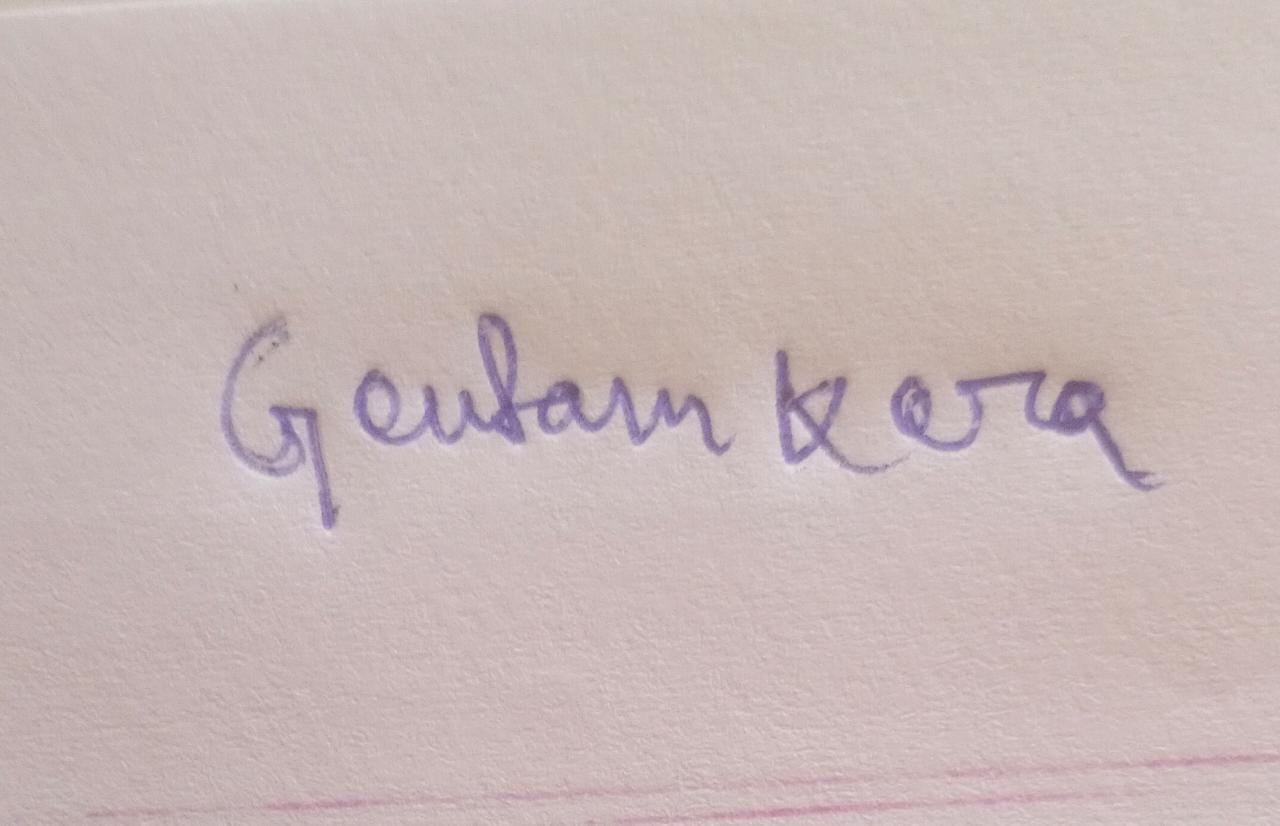 Gautam Kara